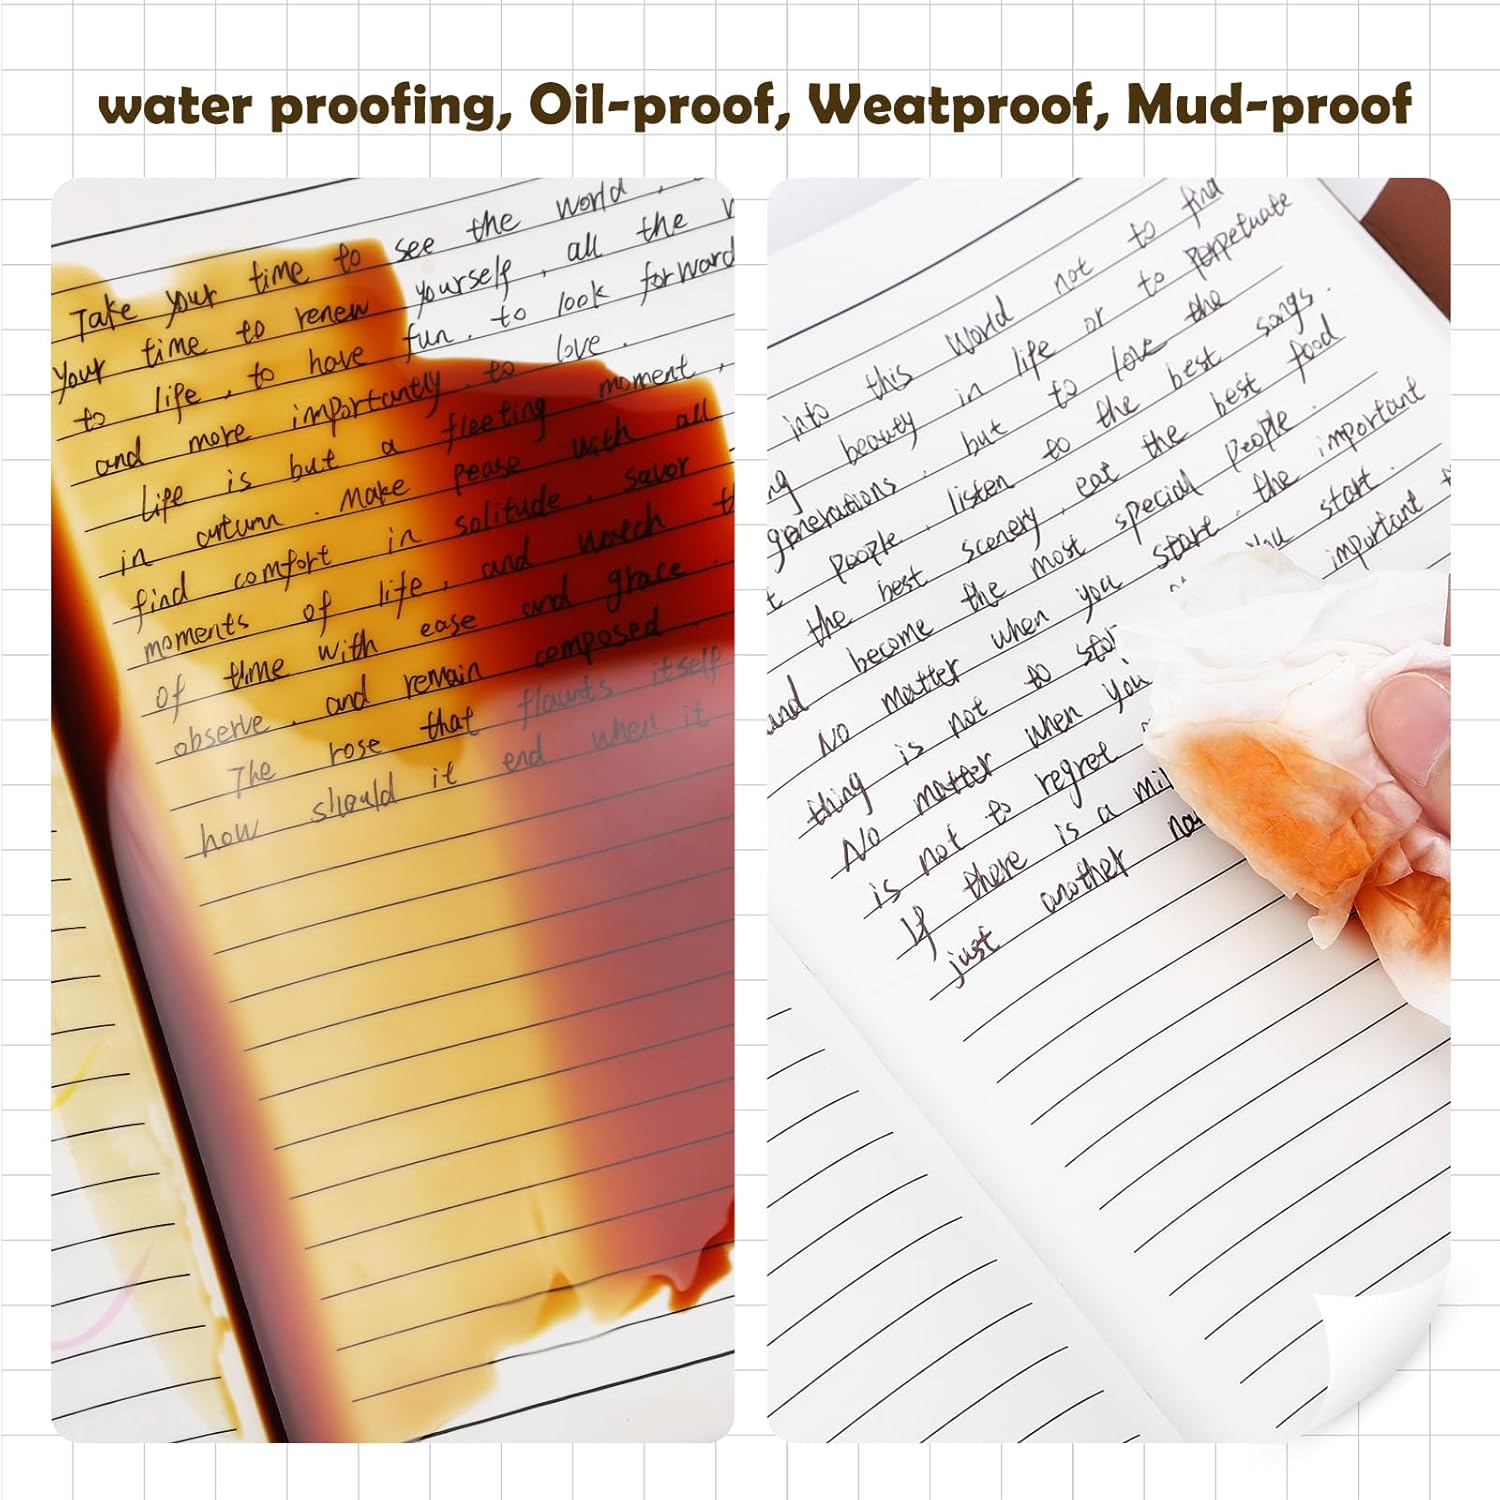 water proofing, Oil-proof, Weatproof, Mud-proof
Take your time to see the world,
your time to renew yourself, all the
to life, to have fun. to look forward
and more importantly, to love.
Life is but a fleeting moment,
in autumn. Make pease with all
find comfort in solitude. savor
moments of life, and watch
of time with ease and grace.
observe, and remain composed.
The rose that flaunts itself
how should it end when it
into this world not to find
beauty in life or to perpetuate
generations, but to love the
people, listen to the best songs.
the best scenery, eat the best food
become the most special people.
No matter when you start, the important
thing is not to you start.
No matter when you important
is not to regret
If there is a
just another